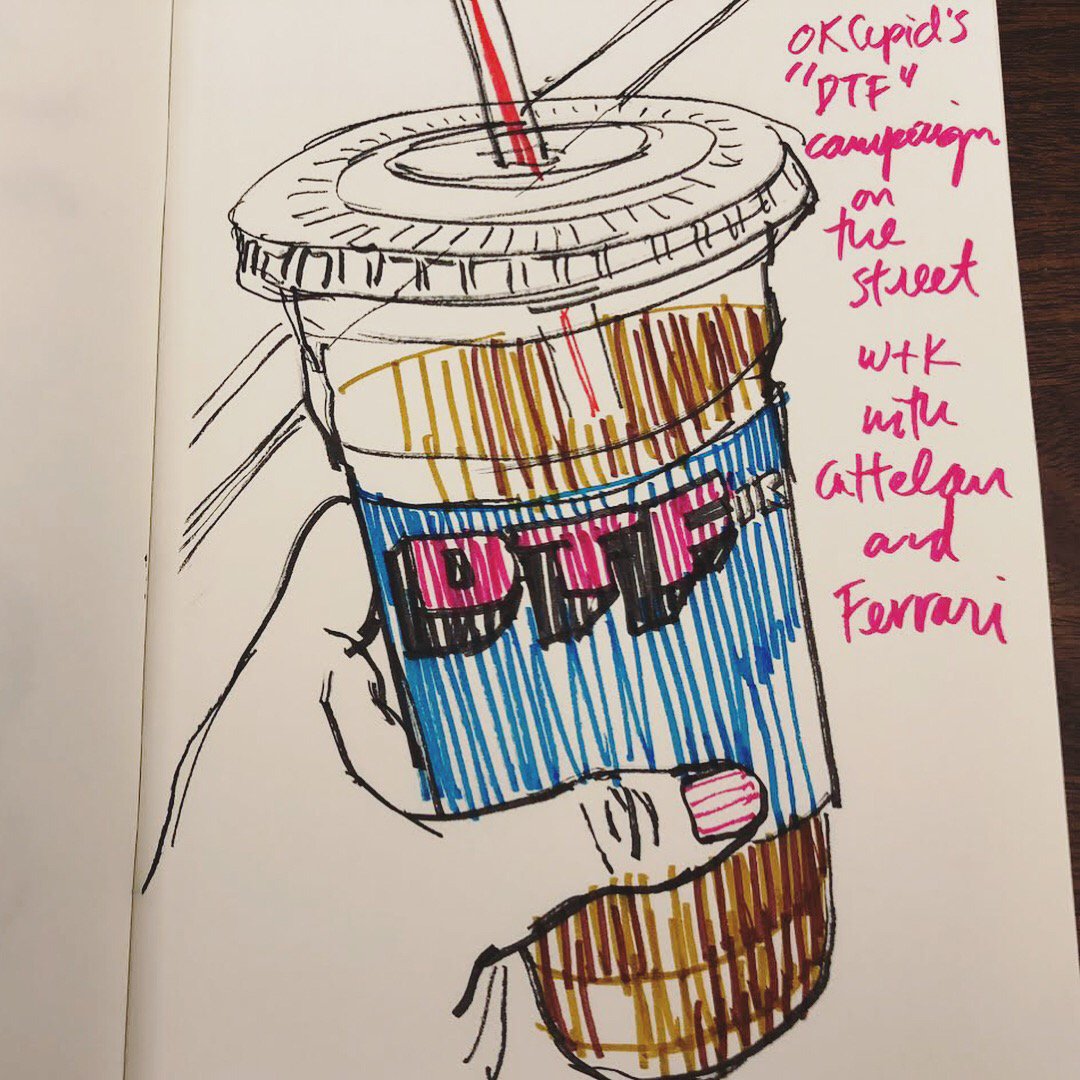 OKCupid's
"DTF"
campaign
on
the
street
W+K
with
Cattelan
and
Ferrari
DTFOR